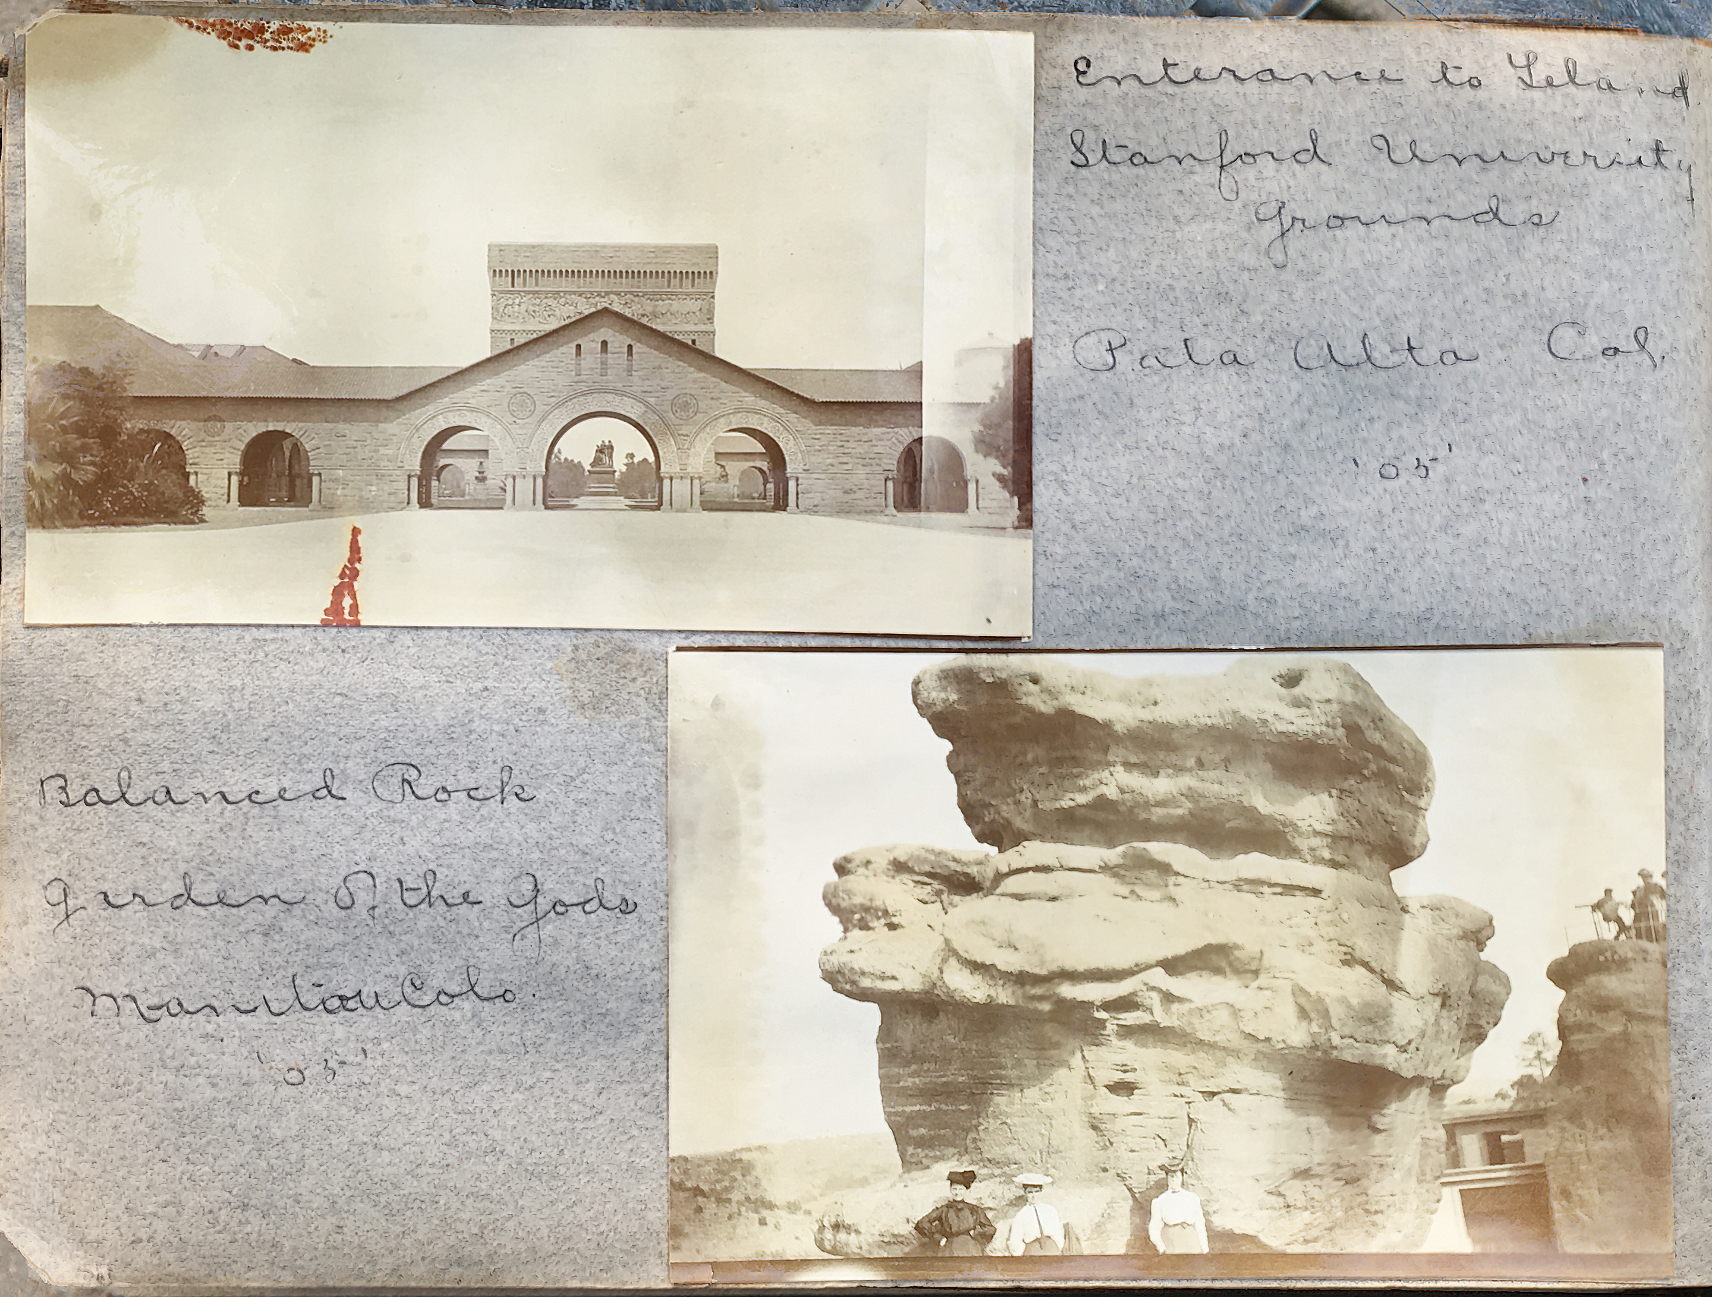 Enterance to Leland
Stanford University
Grounds
Pala Alta Cal.
'05'
Balanced Rock
Garden of the Gods
Manitou Colo.
'05'